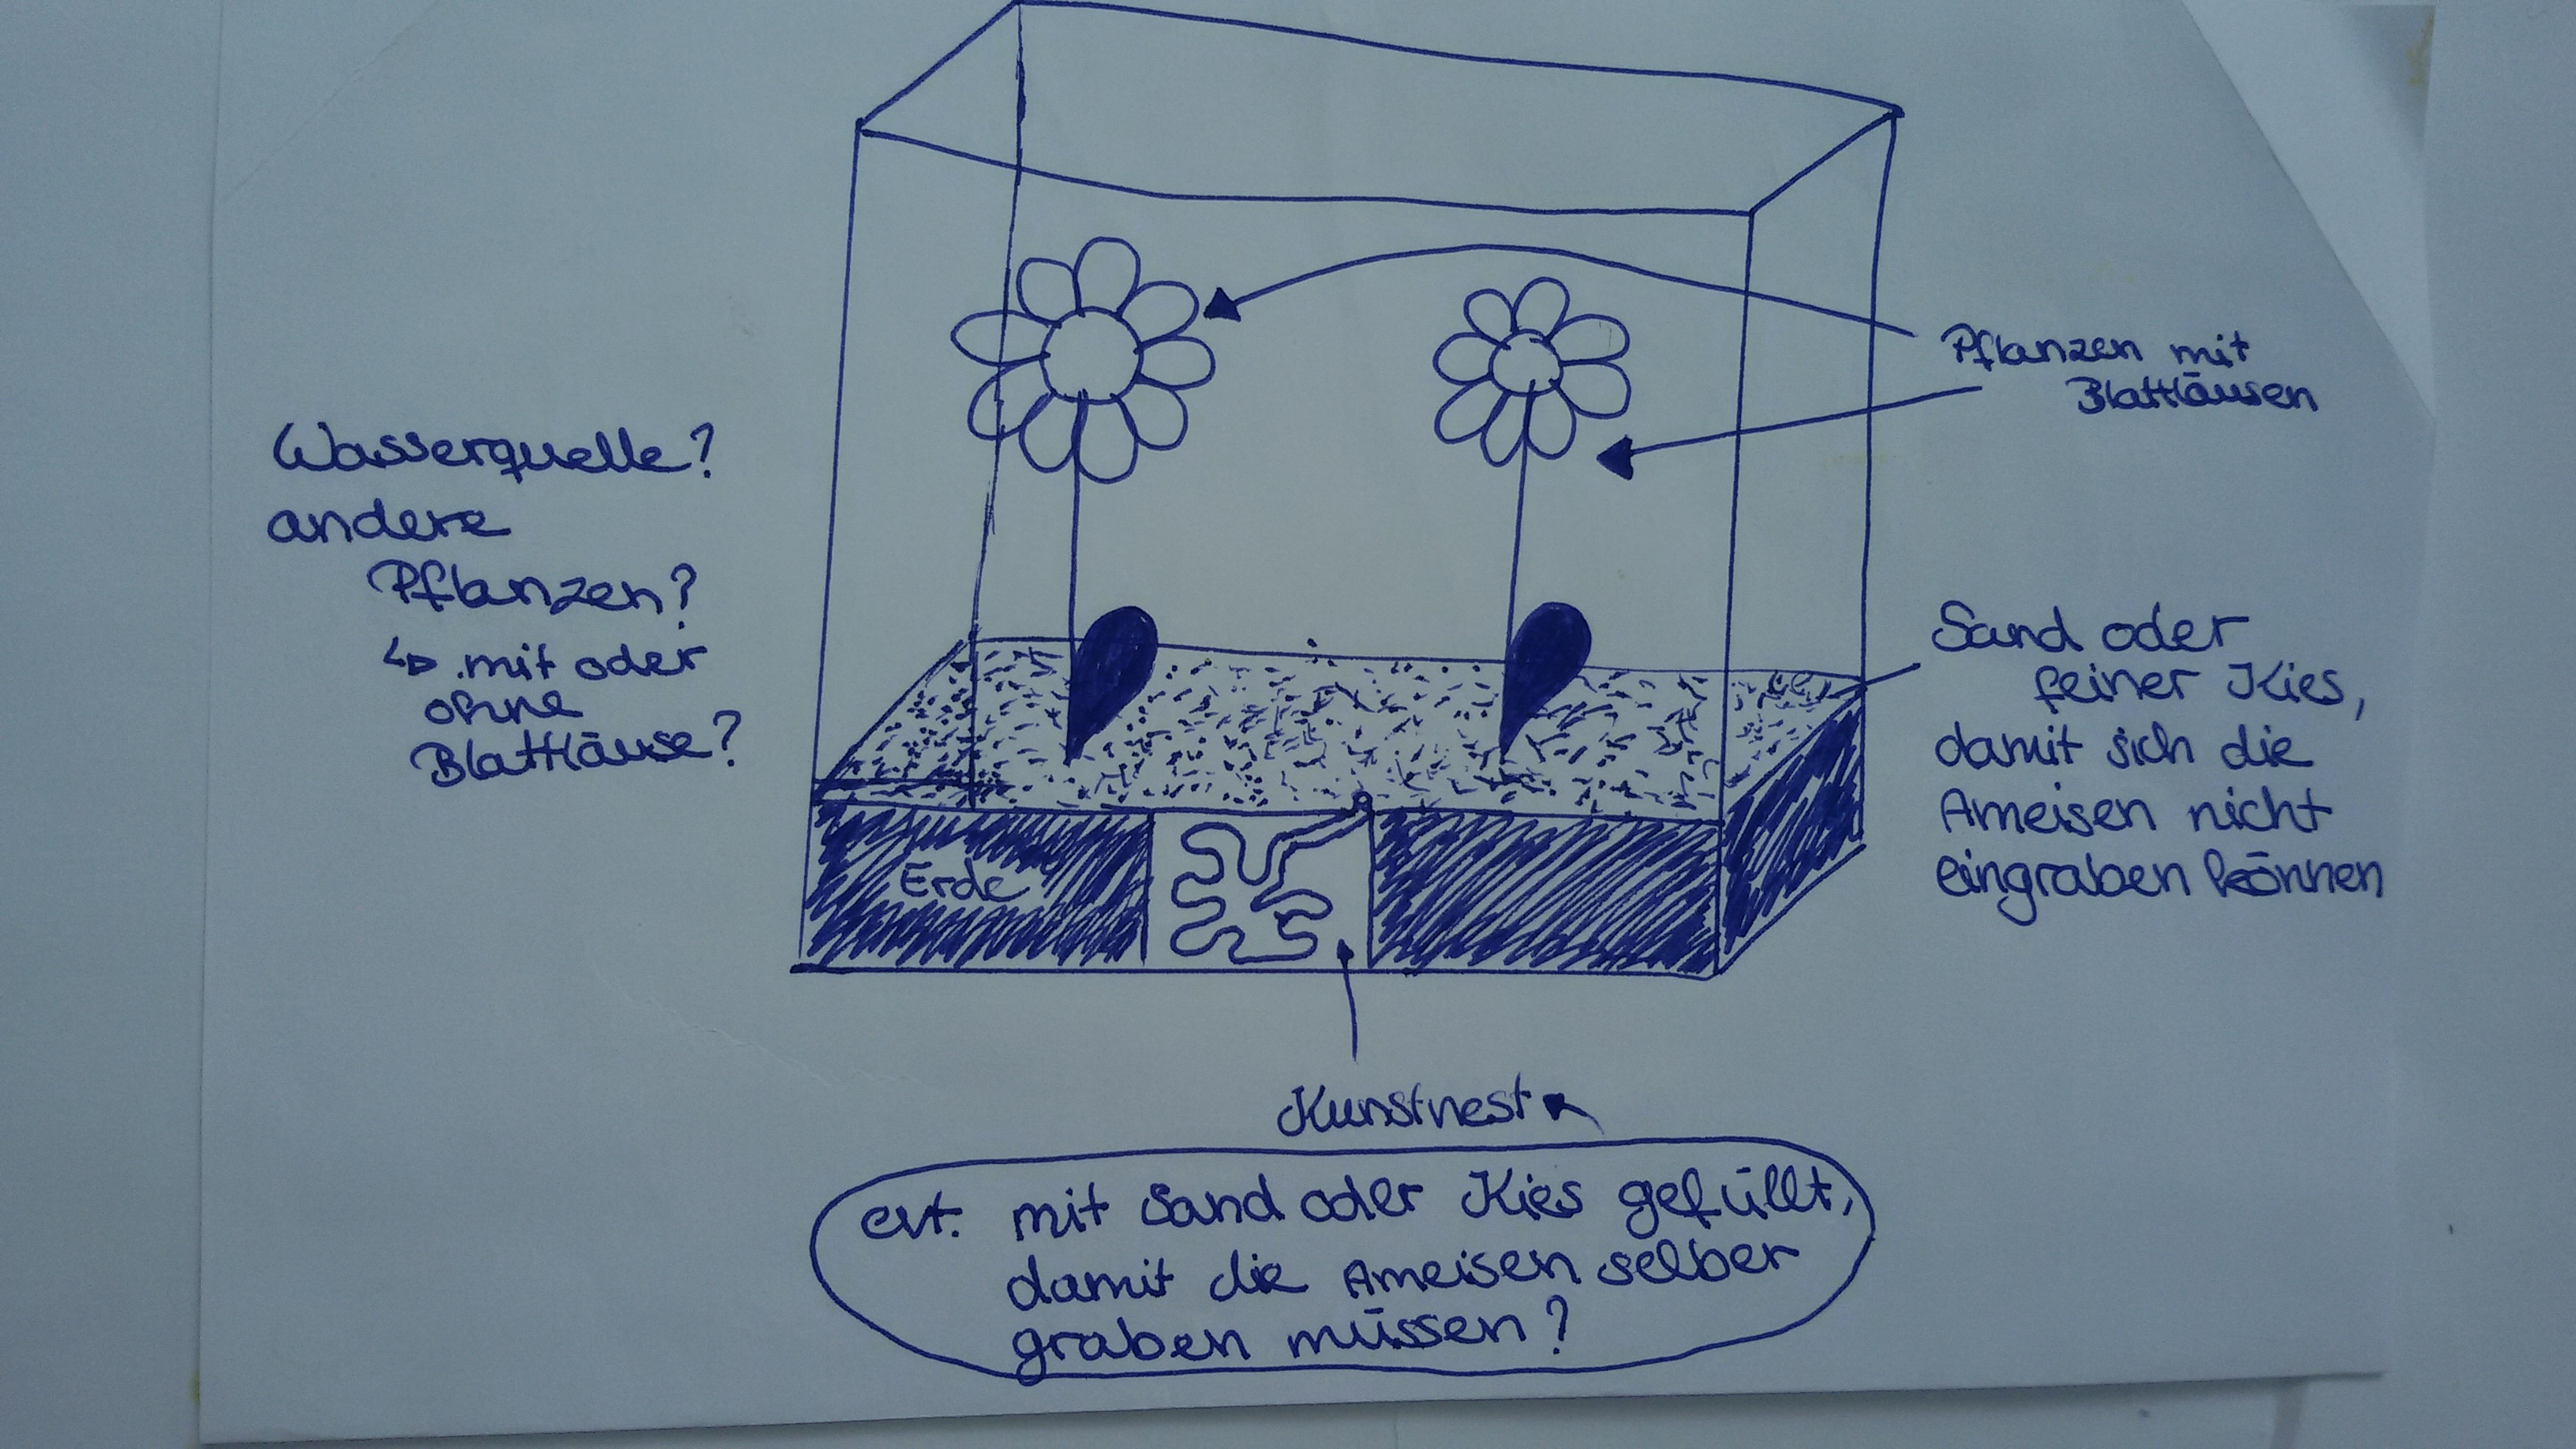 Wasserquelle?
andere
Pflanzen?
↳ mit oder
ohne
Blattläuse?
Pflanzen mit
Blattläusen
Sand oder
feiner Kies,
damit sich die
Ameisen nicht
eingraben können
Erde
Kunstnest
evt. mit Sand oder Kies gefüllt,
damit die Ameisen selber
graben müssen?